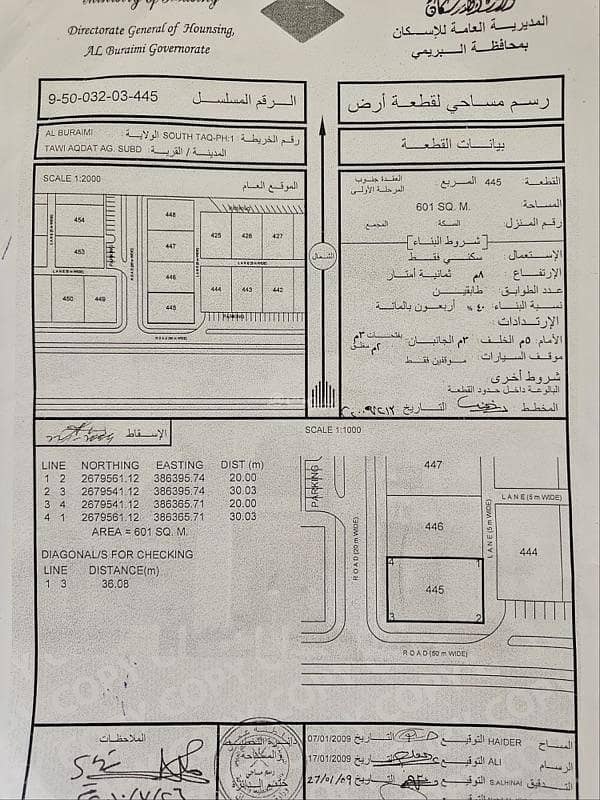 Directorate General of Hounsing,
AL Buraimi Governorate
المديرية العامة للإسكان
بمحافظة البريمي
رسم مساحي لقطعة أرض
الرقم المسلسل 9-50-032-03-445
بيانات القطعة
رقم الخريطة: SOUTH TAQ-PH:1 الولاية: AL BURAIMI
المدينة / القرية: TAWI AQDAT AG. SUBD
القطعة: 445 المربع: العقدة جنوب
المرحلة الأولى
المساحة 601 SQ. M.
رقم المنزل: السكة: المجمع
شروط البناء
الإستعمال: سكني فقط
الإرتفاع: ٨م ثمانية أمتار
عدد الطوابق: طابقين
نسبة البناء: ٤٠% أربعون بالمائة
الإرتدادات:
الأمام: ٥م الخلف: ٣م الجانبان: بفتحات ٣م
٢م مغلق
موقف السيارات: موقفين فقط
شروط أخرى
البالوعة داخل حدود القطعة
المخطط التاريخ
SCALE 1:2000 الموقع العام
454
453
450
449
448
447
446
445
425
426
427
444
443
442
LANE (5 m WIDE)
PARKING
ROAD (50 m WIDE)
الشمال
الإسقاط
SCALE 1:1000
LINE NORTHING EASTING DIST (m)
1 2 2679561.12 386395.74 20.00
2 3 2679541.12 386395.74 30.03
3 4 2679541.12 386365.71 20.00
4 1 2679561.12 386365.71 30.03
AREA = 601 SQ. M.
DIAGONAL/S FOR CHECKING
LINE DISTANCE(m)
1 3 36.08
PARKING
ROAD (20 m WIDE)
447
446
445
444
4
1
3
2
LANE (5 m WIDE)
LANE (5 m WIDE)
ROAD (50 m WIDE)
الملاحظات
المساح HAIDER التوقيع التاريخ 07/01/2009
الرسام ALI التوقيع التاريخ 17/01/2009
التدقيق S.ALHINAI التوقيع التاريخ 27/01/09